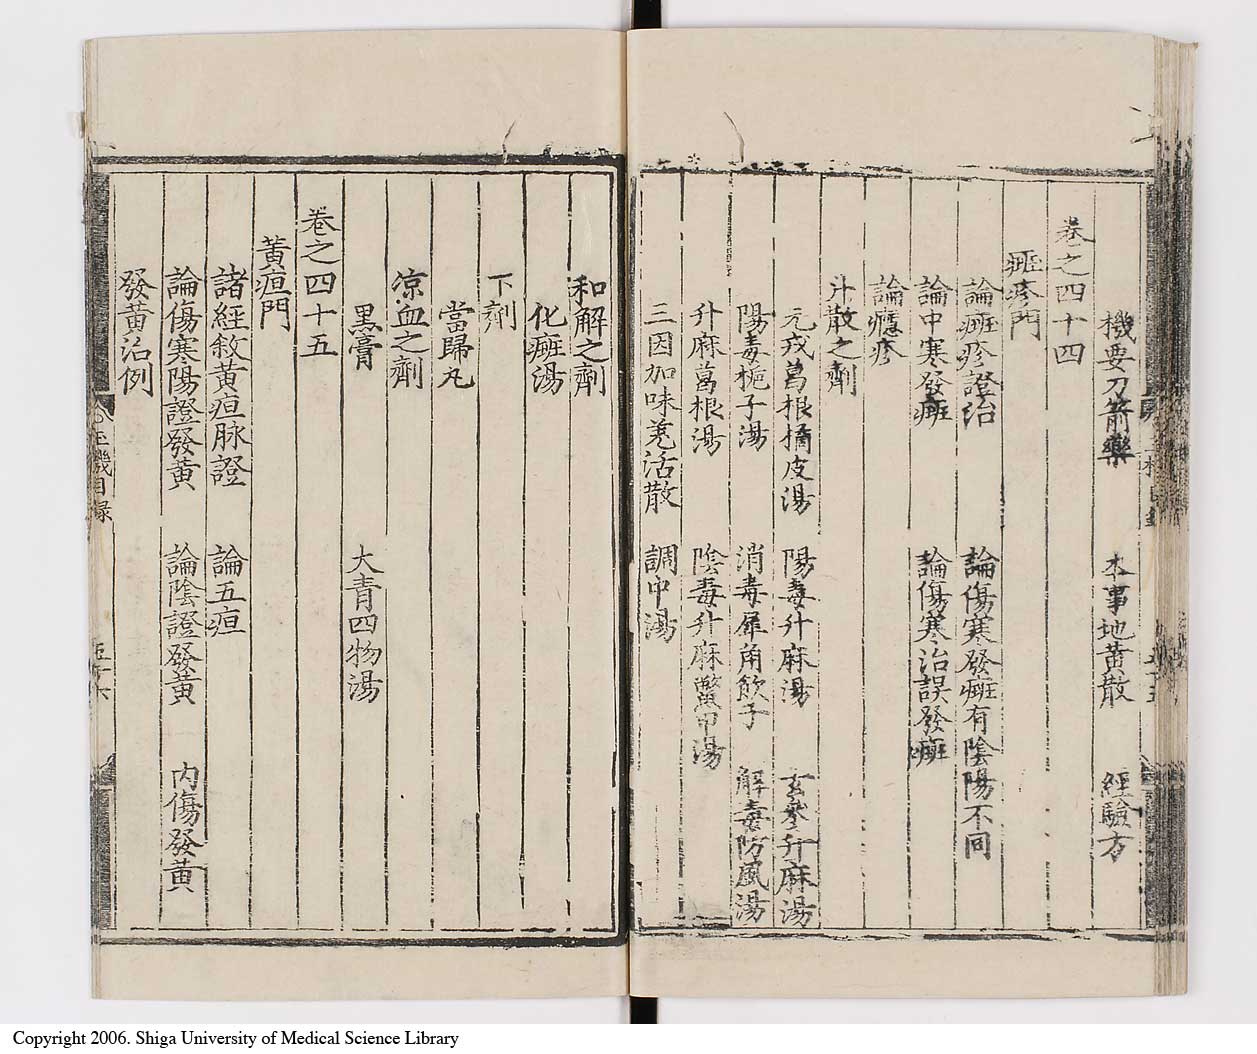 機要刀箭藥 本事地黃散 經驗方
卷之四十四
癍疹門
論癍疹證治 論傷寒發癍有陰陽不同
論中寒發癍 論傷寒治誤發癍
論癮疹
升散之劑
元戎葛根橘皮湯 陽毒升麻湯 玄參升麻湯
陽毒梔子湯 消毒犀角飲子 解毒防風湯
升麻葛根湯 陰毒升麻鱉甲湯
三因加味羌活散 調中湯
和解之劑
化癍湯
下劑
當歸丸
凉血之劑
黑膏 大青四物湯
卷之四十五
黃疸門
諸經敘黃疸脉證 論五疸
論傷寒陽證發黃 論陰證發黃 內傷發黃
發黃治例
玉機目錄
五十六
Copyright 2006. Shiga University of Medical Science Library